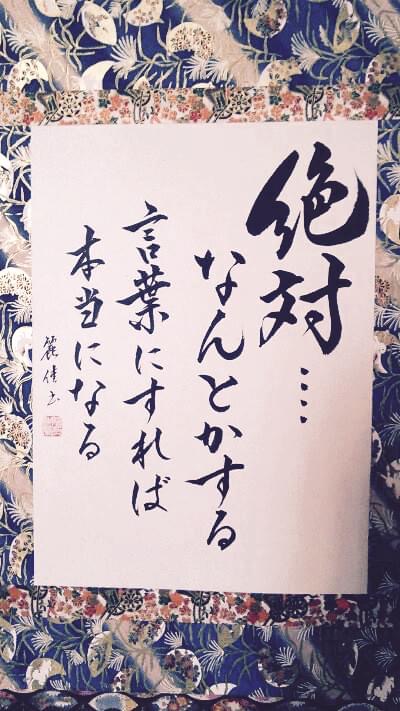 絶対…
なんとかする
言葉にすれば
本当になる
麗佳書